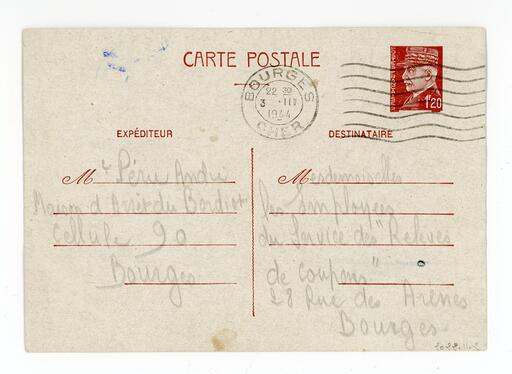 CARTE POSTALE
BOURGES
22 30
3 - III
1944
CHER
1F20
EXPÉDITEUR
Mr Périn André
Maison d'Arrêt du Bordiot
Cellule 90
Bourges
DESTINATAIRE
Mesdemoiselles
les Employées
du Service des "Relevés
de coupons"
28 Rue des Arènes
Bourges